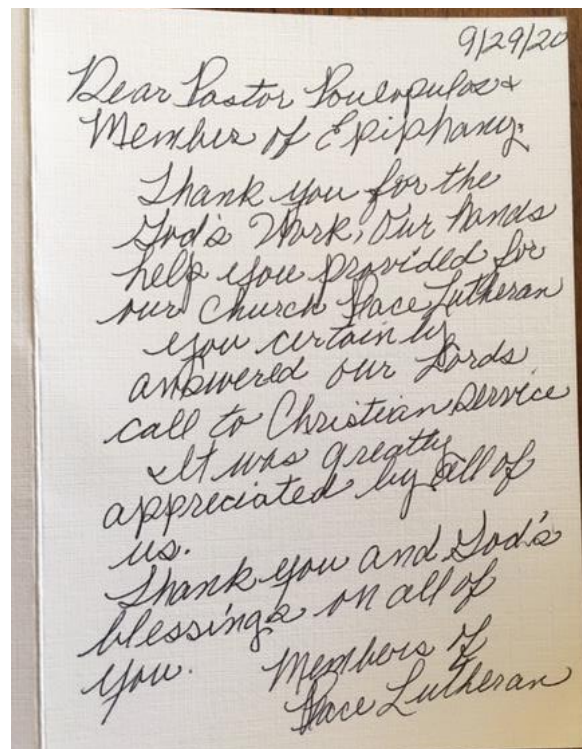 9/29/20
Dear Pastor &
Member of Epiphany:
Thank you for the
God's Work, Our hands
help you provided for
our Church Lutheran
you certainly
answered our Lords
call to Christian Service
It was greatly
appreciated by all of
us.
Thank you and God's
blessings on all of
you. Members of
Lutheran